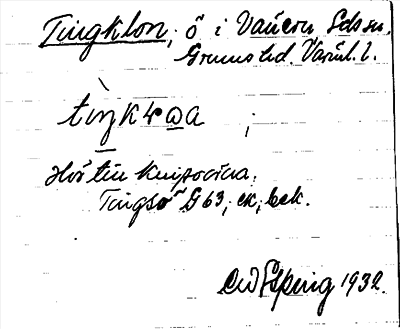 Tingklon, ö i Vänern Eds sn.
Grums hd. Värml. l.
tìŋkɬωa ;
Hör till Knipöarna.
Tingsö G 63, ek, bek.
EW Esping 1932.